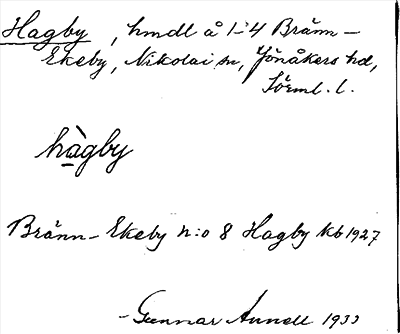 Hagby, hmdl å 1:4 Bränn-
Ekeby, Nikolai sn, Jönåkers hd,
Sörml. l.
hàgby
Bränn-Ekeby n:o 8 Hagby Kb 1927
- Gunnar Annell 1933